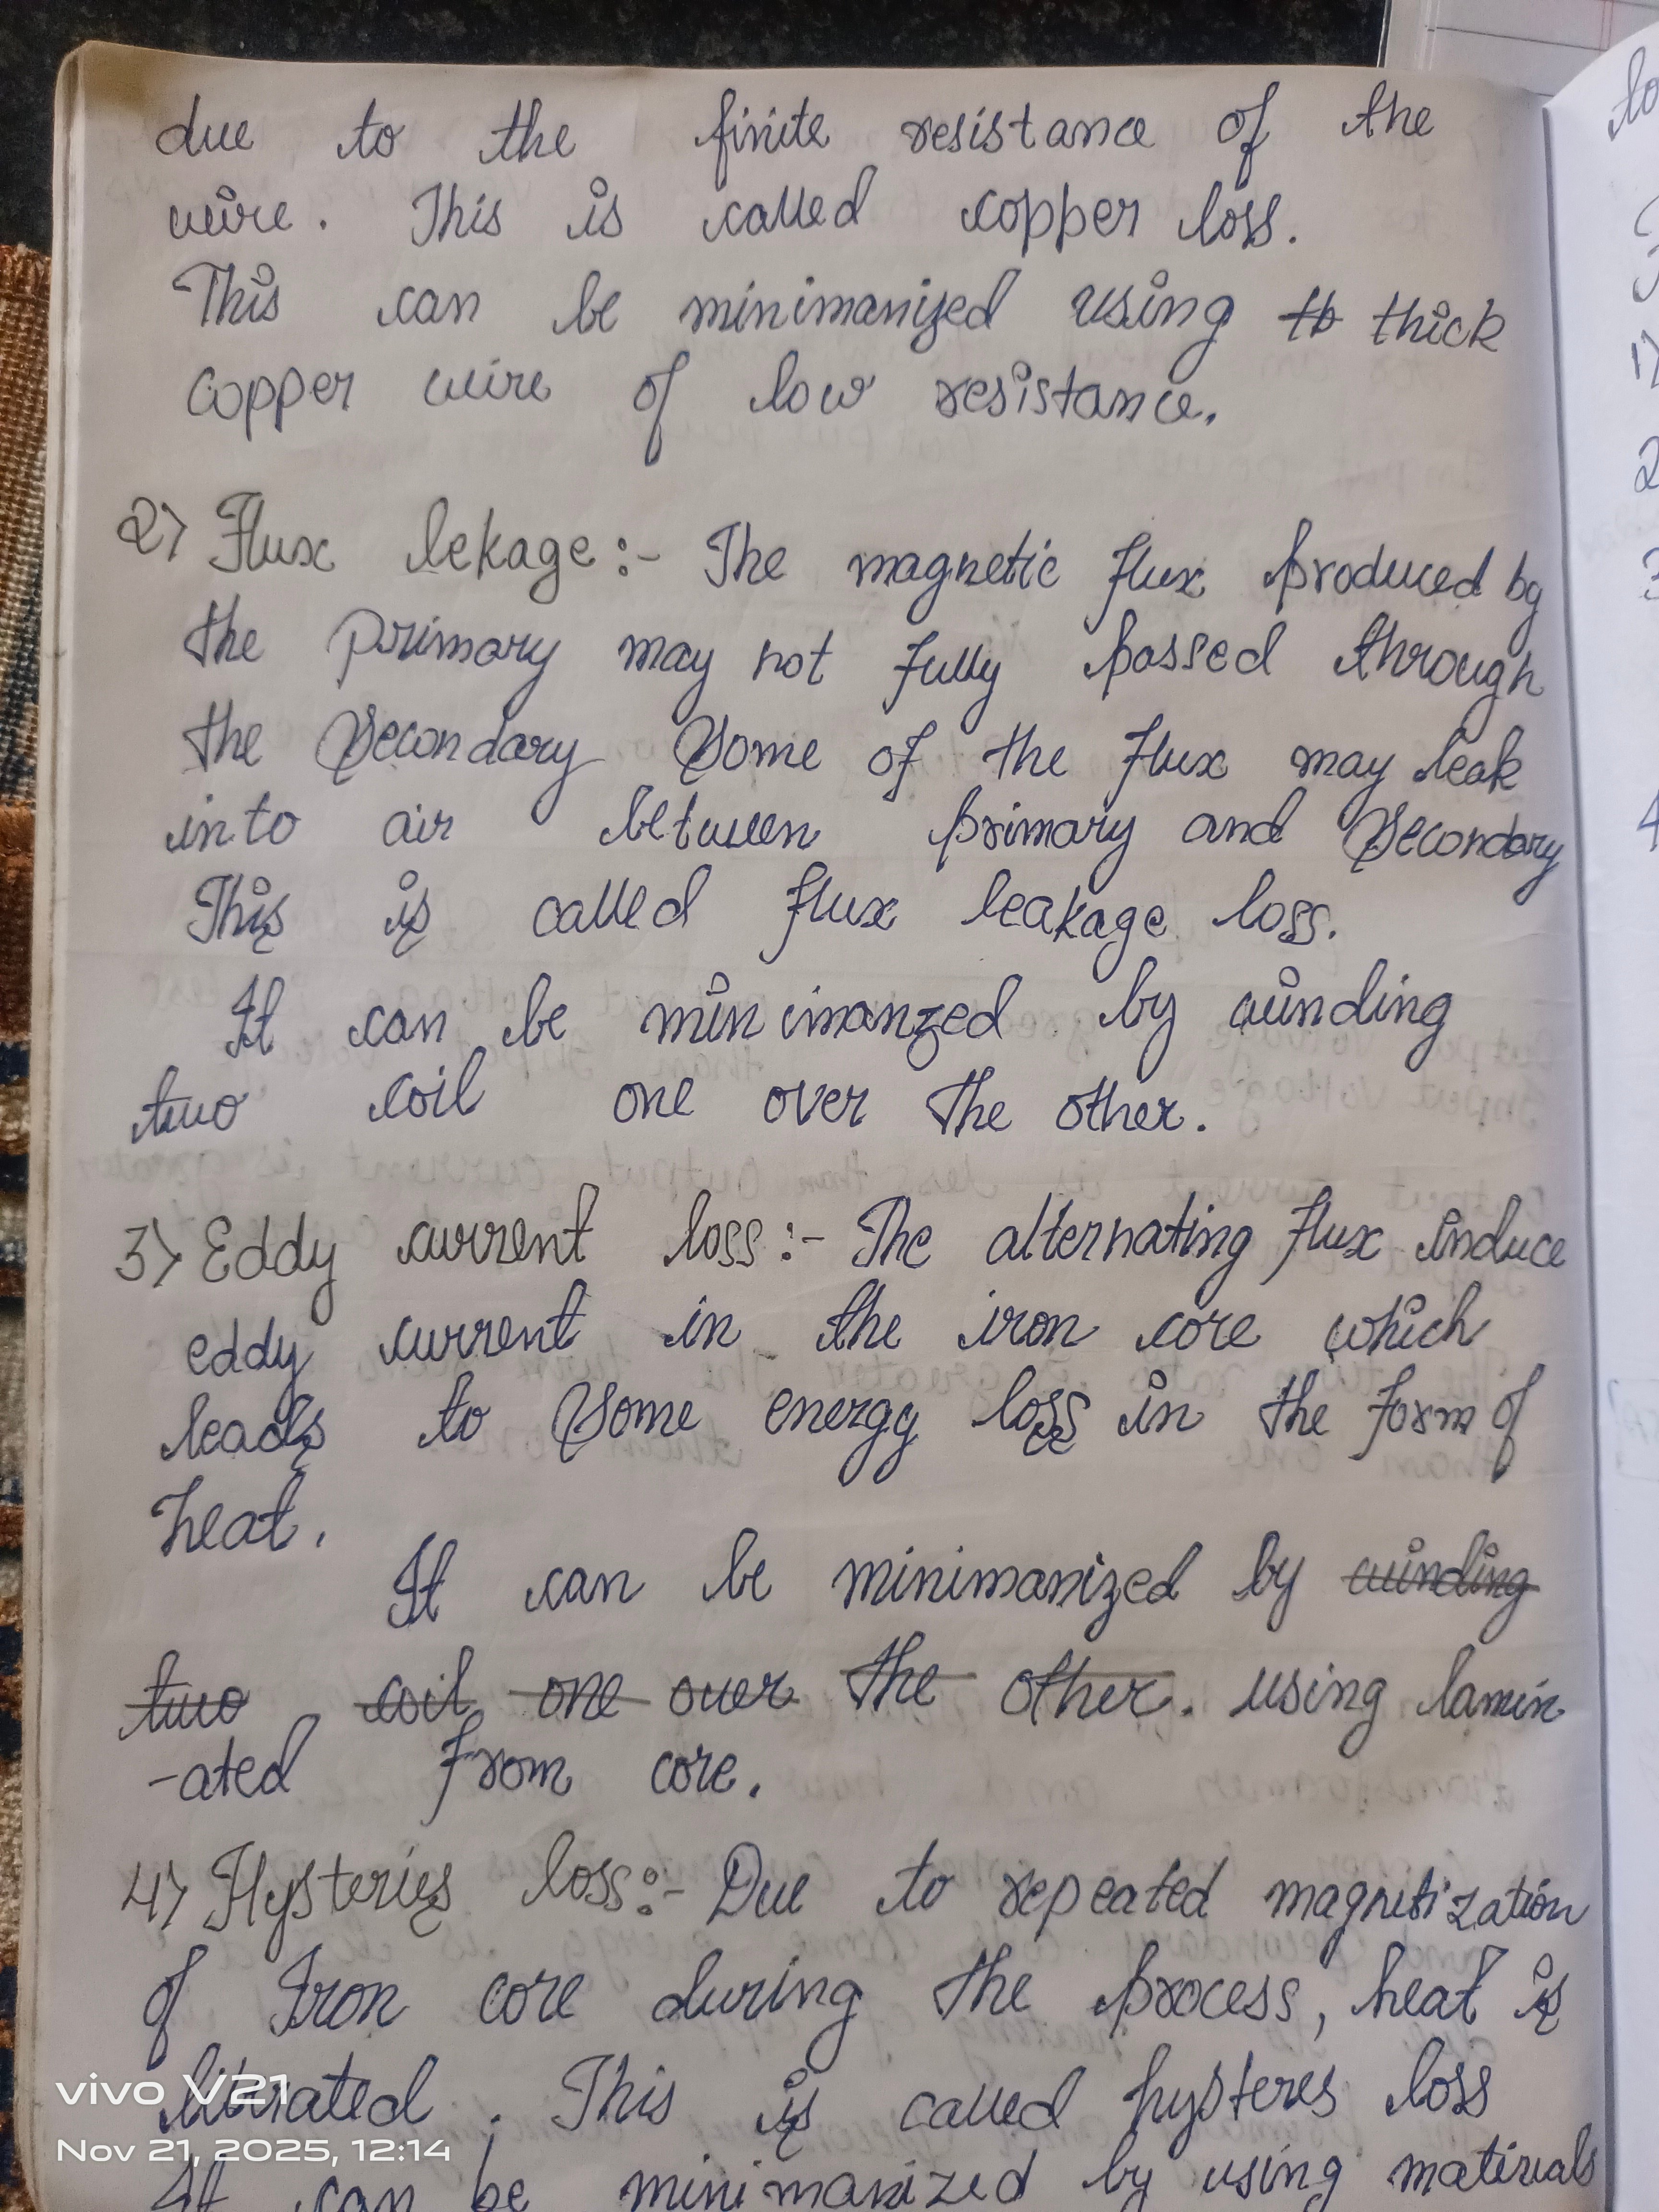 due to the finite resistance of the
wire. This is called copper loss.
This can be minimanized using th thick
copper wire of low resistance.
2> Flux lekage:- The magnetic flux produced by
the primary may not fully passed through
the Secondary Some of the flux may leak
into air between primary and Secondary
This is called flux leakage loss.
It can be minimanzed by winding
two coil one over the other.
3> Eddy current loss:- The alternating flux induce
eddy current in the iron core which
leads to Some energy loss in the form of
heat.
It can be minimanized by winding
two coil one over the other. using lamin
-ated from core.
4> Hysteries loss:- Due to repeated magnitization
of Iron core during the process, heat is
librated. This is called hysteres loss
It can be minimanized by using materials
vivo V21
Nov 21, 2025, 12:14
lo
1>
2
3
4